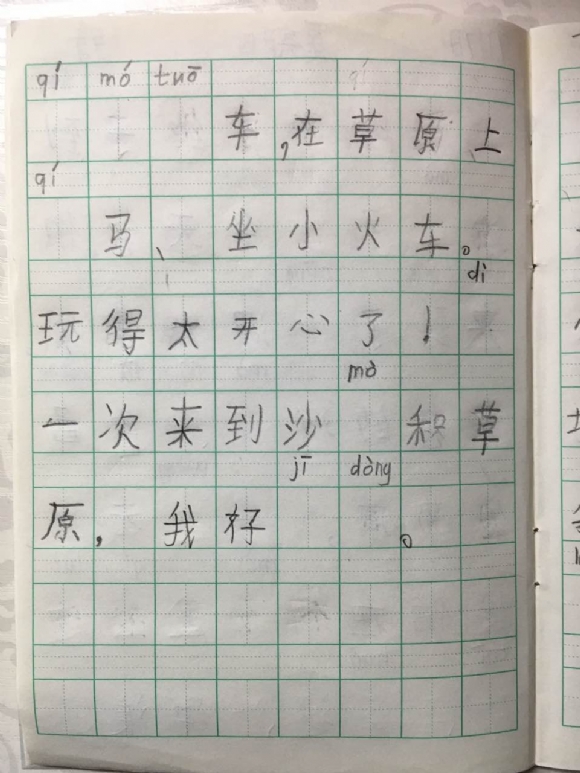 qí mó tuō
车,在草原上
qí
马、坐小火车。
dì
玩得太开心了!
mò
一次来到沙积草
jī dòng
原,我好。